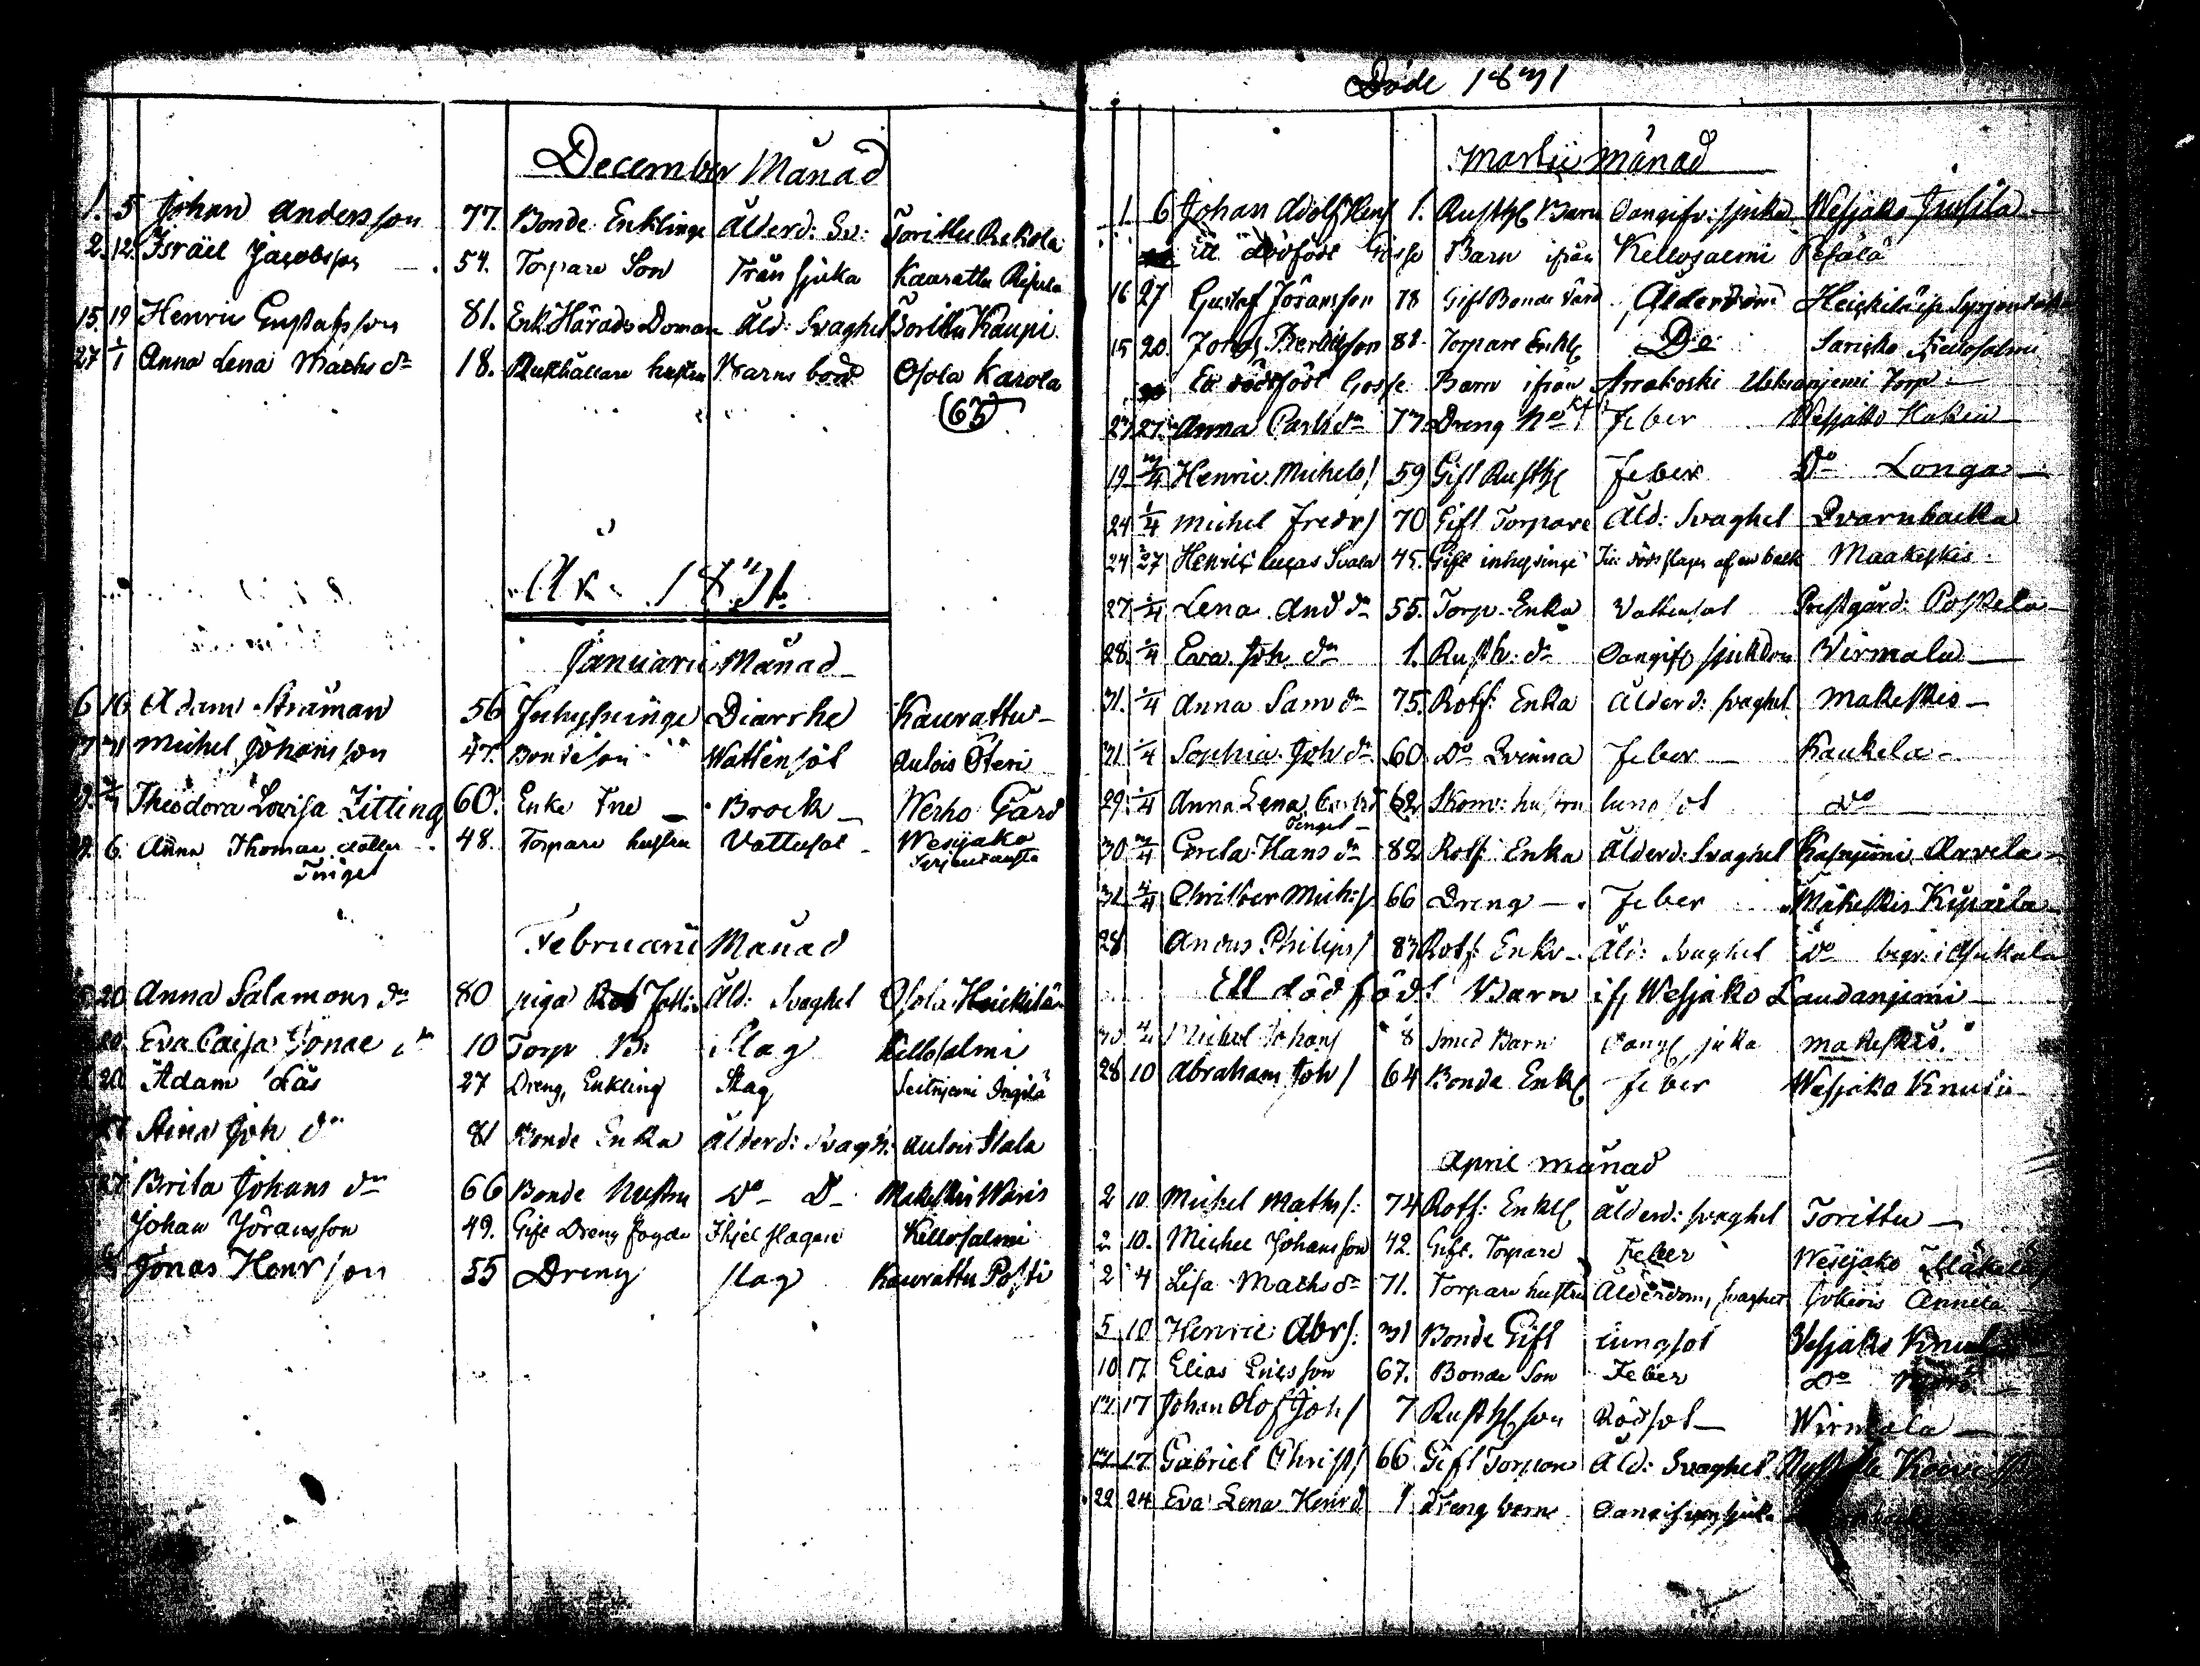 December Månad
1. 5 Johan Andersson 77. Bonde Enklinge Ålderd: Sv: Torittu Rekola
2. 12. Israël Jacobsson 54. Torpare Son Trånsjuka Kaurattu
15. 19 Henric Gustafsson 81. Enkl. Härads Doman Åld: Svaghet Torittu Kaupi
27 1/1 Anna Lena Maths dr 18. Rusthållare hustru Barns börd Osola Karola
(63)
År 1831.
Januarii Månad
6 16 Adam Stråman 56 Inhysinge Diarrhe Kaurattu
Michel Johansson 47. Bonde son Wattensot Aulois Oteri
Theodora Lovisa Zitting 60. Enke Fru Brock Werho Gård
9. 6. Anna Thomae dotter 48. Torpare hustru Vattusot Wesijako
Tringel
Februarii Månad
20 Anna Salamons dr 80 piga Åld: Svaghet Osola Heickilä
20. Eva Caisa Jonae dr 10 Torp Br Slag Kellosalmi
20 Adam Lås 27 Dreng, Enkling Slag Seitniemi Ingilä
27 Stina Joh dr 81 Bonde Enka Ålderd: Svagh: Aulois Stala
27 Brita Johans dr 66 Bonde Hustru Do Do Makeskis Waris
Johan Jöransson 49. Gift Dreng fogde Ihjel slagen Kellosalmi
Jonas Henrsson 55 Dreng slag Kaurattu Posti
Döde 1831
Martii månad
1. 6 Johan Adolf Hens 1. Rusth Barn Oangifv: sjuka Wesijako Jussila
Ett dödfödt Gosse Barn ifrån Kellosaemi Pesälä
16 27 Gustaf Jöransson 78 Gift Bonde Ålderdom
15 20. Jonas Bertilsson 88. Torpare Enkl Do Kellosalmi
Ett dödfödt Gosse Barn ifrån Arrakoski Torp
27. 27. Anna Carls dr 77. Dreng Feber Wesijako
19 Henric Michels 59 Gift Rusth Feber Do Longa
24 1/4 Michel Fredrs 70 Gift Torpare Åld: Svaghet Qvarnbacka
24 27 Henric Lucas Svala 45. Gift inhysinge Maakeskis
27 1/4 Lena And dr 55. Torp Enka Vattusot Prestgård: Poskela
28. 1/4 Eva Joh dr 1. Rusth: dr Oangif sjukdom Virmala
31. 1/4 Anna Sam dr 75. Rotf: Enka Ålderd: svaghet Makeskis
31 1/4 Sophia Joh dr 60 Do Qvinna Feber Kaukela
29. 1/4 Anna Lena 62 Skom: hustru lungsot do
Tengel
30 Greta Hans dr 82 Rotf Enka Ålderd: Svaghet Kasiniemi Arvela
31 4/4 Christer Michs 66 Dreng Feber Makeskis
28 Anders Philips 83 Rotf: Enkl Åld: Svaghet Do begr: i Asikala
Ett dödfödt Barn if Wesijako Laudaniemi
30 4/4 Michel Johans 8 Smed Barn Oang sjuka Makeskis.
28 10 Abraham Joh 64 Bonde Enkl Feber Wesijako Knuti
April månad
2 10 Michel Maths: 74 Rotf: Enkl Ålderd: svaghet Torittu
2 10. Michel Johansson 42. Gift. Torpare Feber Wesijako
2 4 Lisa Maths dr 71. Torpare hustru Ålderdom, svaghet Jokiois Annela
5 10 Henric Abrs: 31 Bonde Gift Lungsot Wesijako
10 17. Elias Ericsson 67. Bonde Son Feber Do
17. 17 Johan Olof Johs 7 Rusth son Rödsot Wirmala
17. 17. Gabriel Christs 66 Gift Torpare Åld: Svaghet
22 24 Eva Lena Henrd 1 Dreng barn